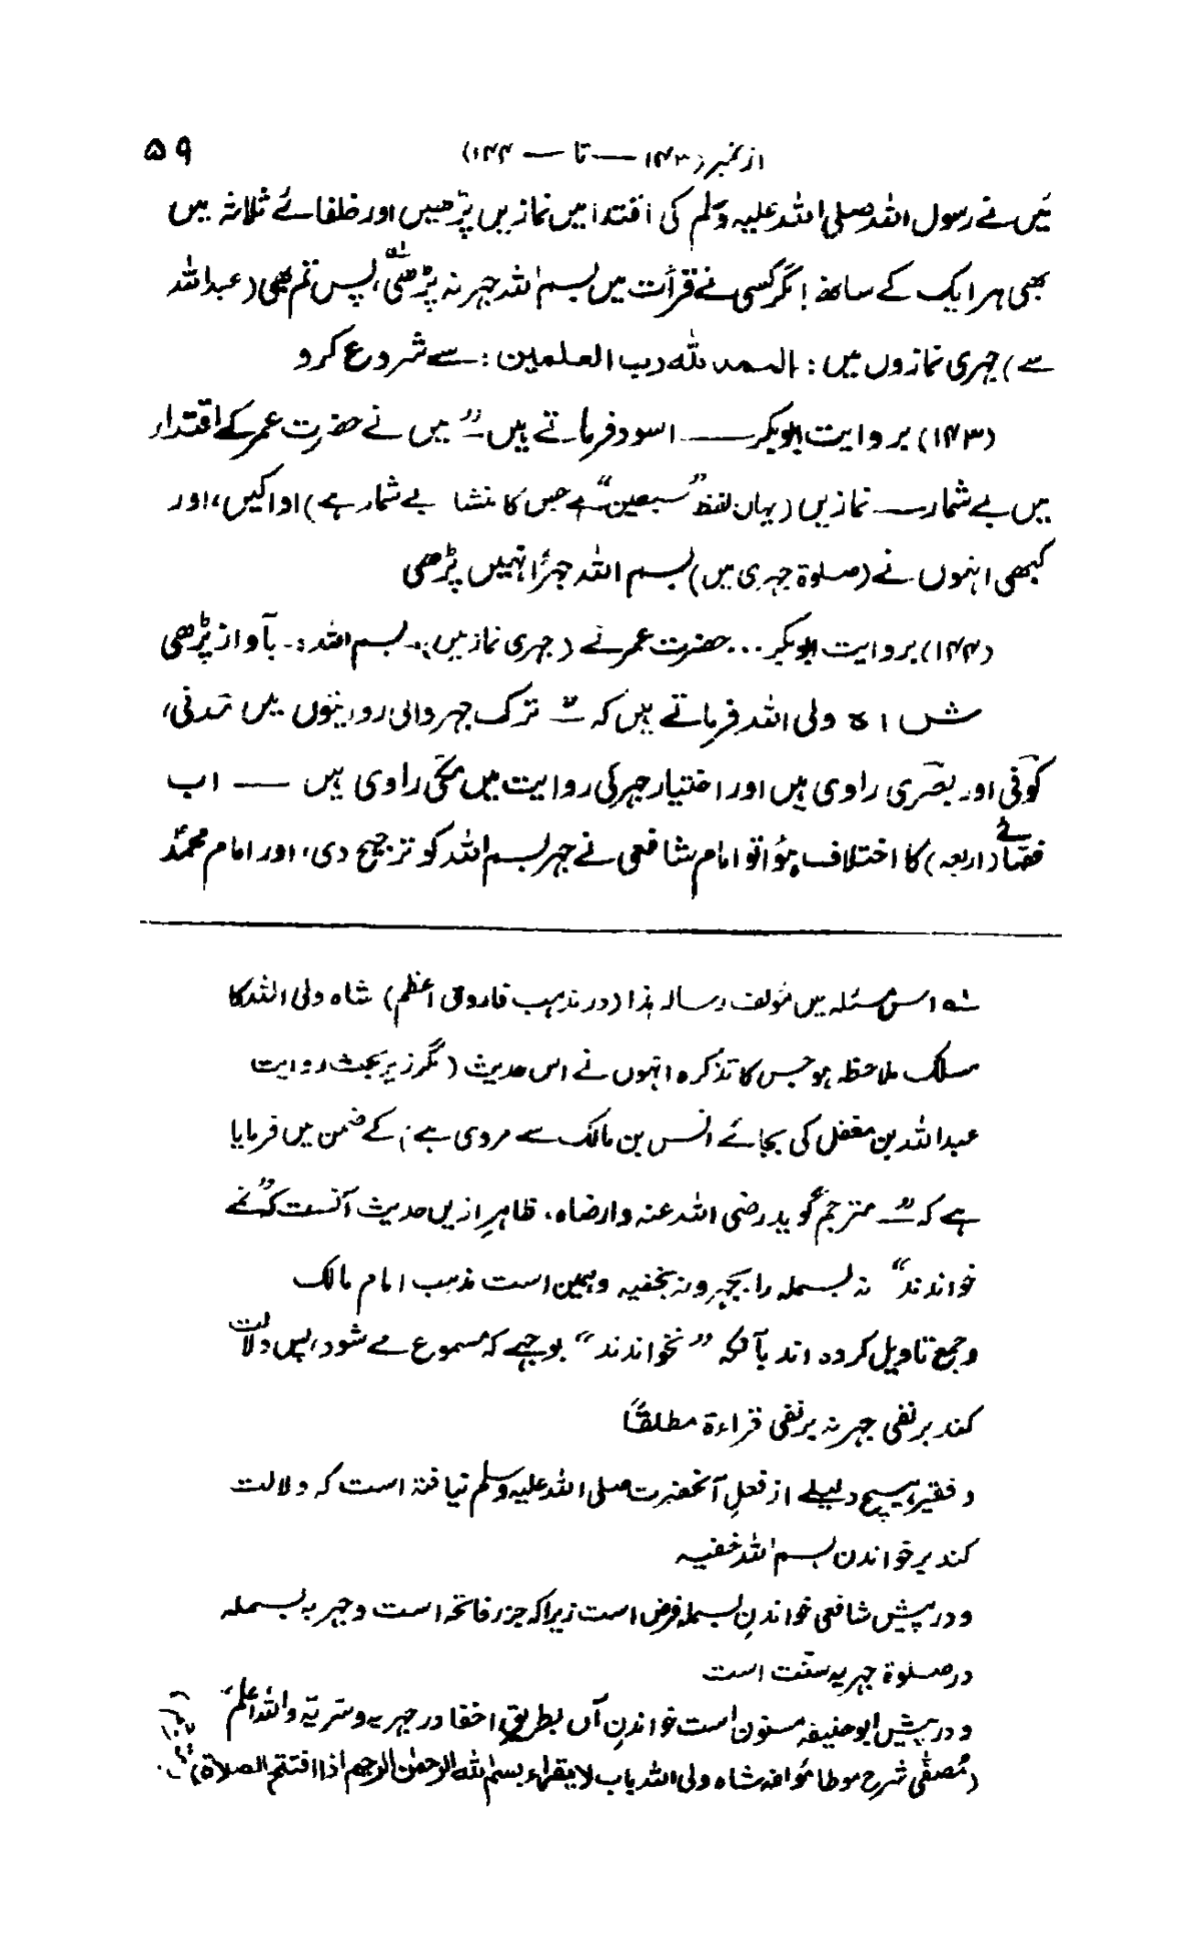 ۵۹
از نمبر (۱۴۳ — تا — ۱۴۴)
میں نے رسول اللہ صلی اللہ علیہ وسلم کی اقتدا میں نمازیں پڑھیں اور خلفائے ثلاثہ میں
بھی ہر ایک کے ساتھ! مگر کسی نے قرأت میں بسم اللہ جہر نہ پڑھی لہ، پس تم بھی (عبداللہ
سے) جہری نمازوں میں: الحمد للہ رب العلمین: سے شروع کرو
(۱۴۳) بروایت ابوبکر — اسود فرماتے ہیں "میں نے حضرت عمر کے اقتدار
میں بے شمار — نمازیں (یہاں لفظ "سبعین" ہے جس کا منشا بے شمار ہے) ادا کیں، اور
کبھی انہوں نے (صلوۃ جہری میں) بسم اللہ جہرًا نہیں پڑھی
(۱۴۴) بروایت ابوبکر ... حضرت عمر نے (جہری نماز میں) :۔ بسم اللہ :۔ بآواز پڑھی
شاہ ولی اللہ فرماتے ہیں کہ " ترک جہر والی روایتوں میں مدنی،
کوفی اور بصری راوی ہیں اور اختیار جہر کی روایت میں مکی راوی ہیں — اب
فقہائے (اربعہ) کا اختلاف ہؤا تو امام شافعی نے جہر بسم اللہ کو ترجیح دی، اور امام محمدؒ
لہ اس مسئلہ میں مؤلف رسالہ ہذا (در مذہب فاروق اعظم) شاہ ولی اللہ کا
مسلک ملاحظہ ہو جس کا تذکرہ انہوں نے اس حدیث (مگر زیر بحث روایت
عبداللہ بن مغفل کی بجائے انس بن مالک سے مروی ہے) کے ضمن میں فرمایا
ہے کہ " مترجم گوید رضی اللہ عنہ وارضاہ، ظاہرِ ازیں حدیث آنست کہ "نمے
خواندند" نہ بسملہ را بجہر و نہ بخفیہ وہمین است مذہب امام مالک
و جمع تاویل کردہ اند بآنکہ "نخواندند" بوجہے کہ مسموع مے شود، پس دلالت
کند بر نفی جہر نہ بر نفی قراءۃ مطلقًا
و فقیر ہیچ دلیلے از فعلِ آنحضرت صلی اللہ علیہ وسلم نیافتہ است کہ دلالت
کند بر خواندن بسم اللہ خفیہ
و در پیش شافعی خواندنِ بسملہ فرض است زیرا کہ جزء فاتحہ است و جہر بہ بسملہ
در صلوۃ جہریہ سنت است
و در پیش ابو حنیفہ مسنون است خواندنِ آں بطریق اخفا در جہریہ و سریہ واللہ اعلم
(مُصفّٰی شرح موطا مؤلفہ شاہ ولی اللہ باب لا یقراء بسم اللہ الرحمٰن الرحیم اذا افتتح الصلاۃ)